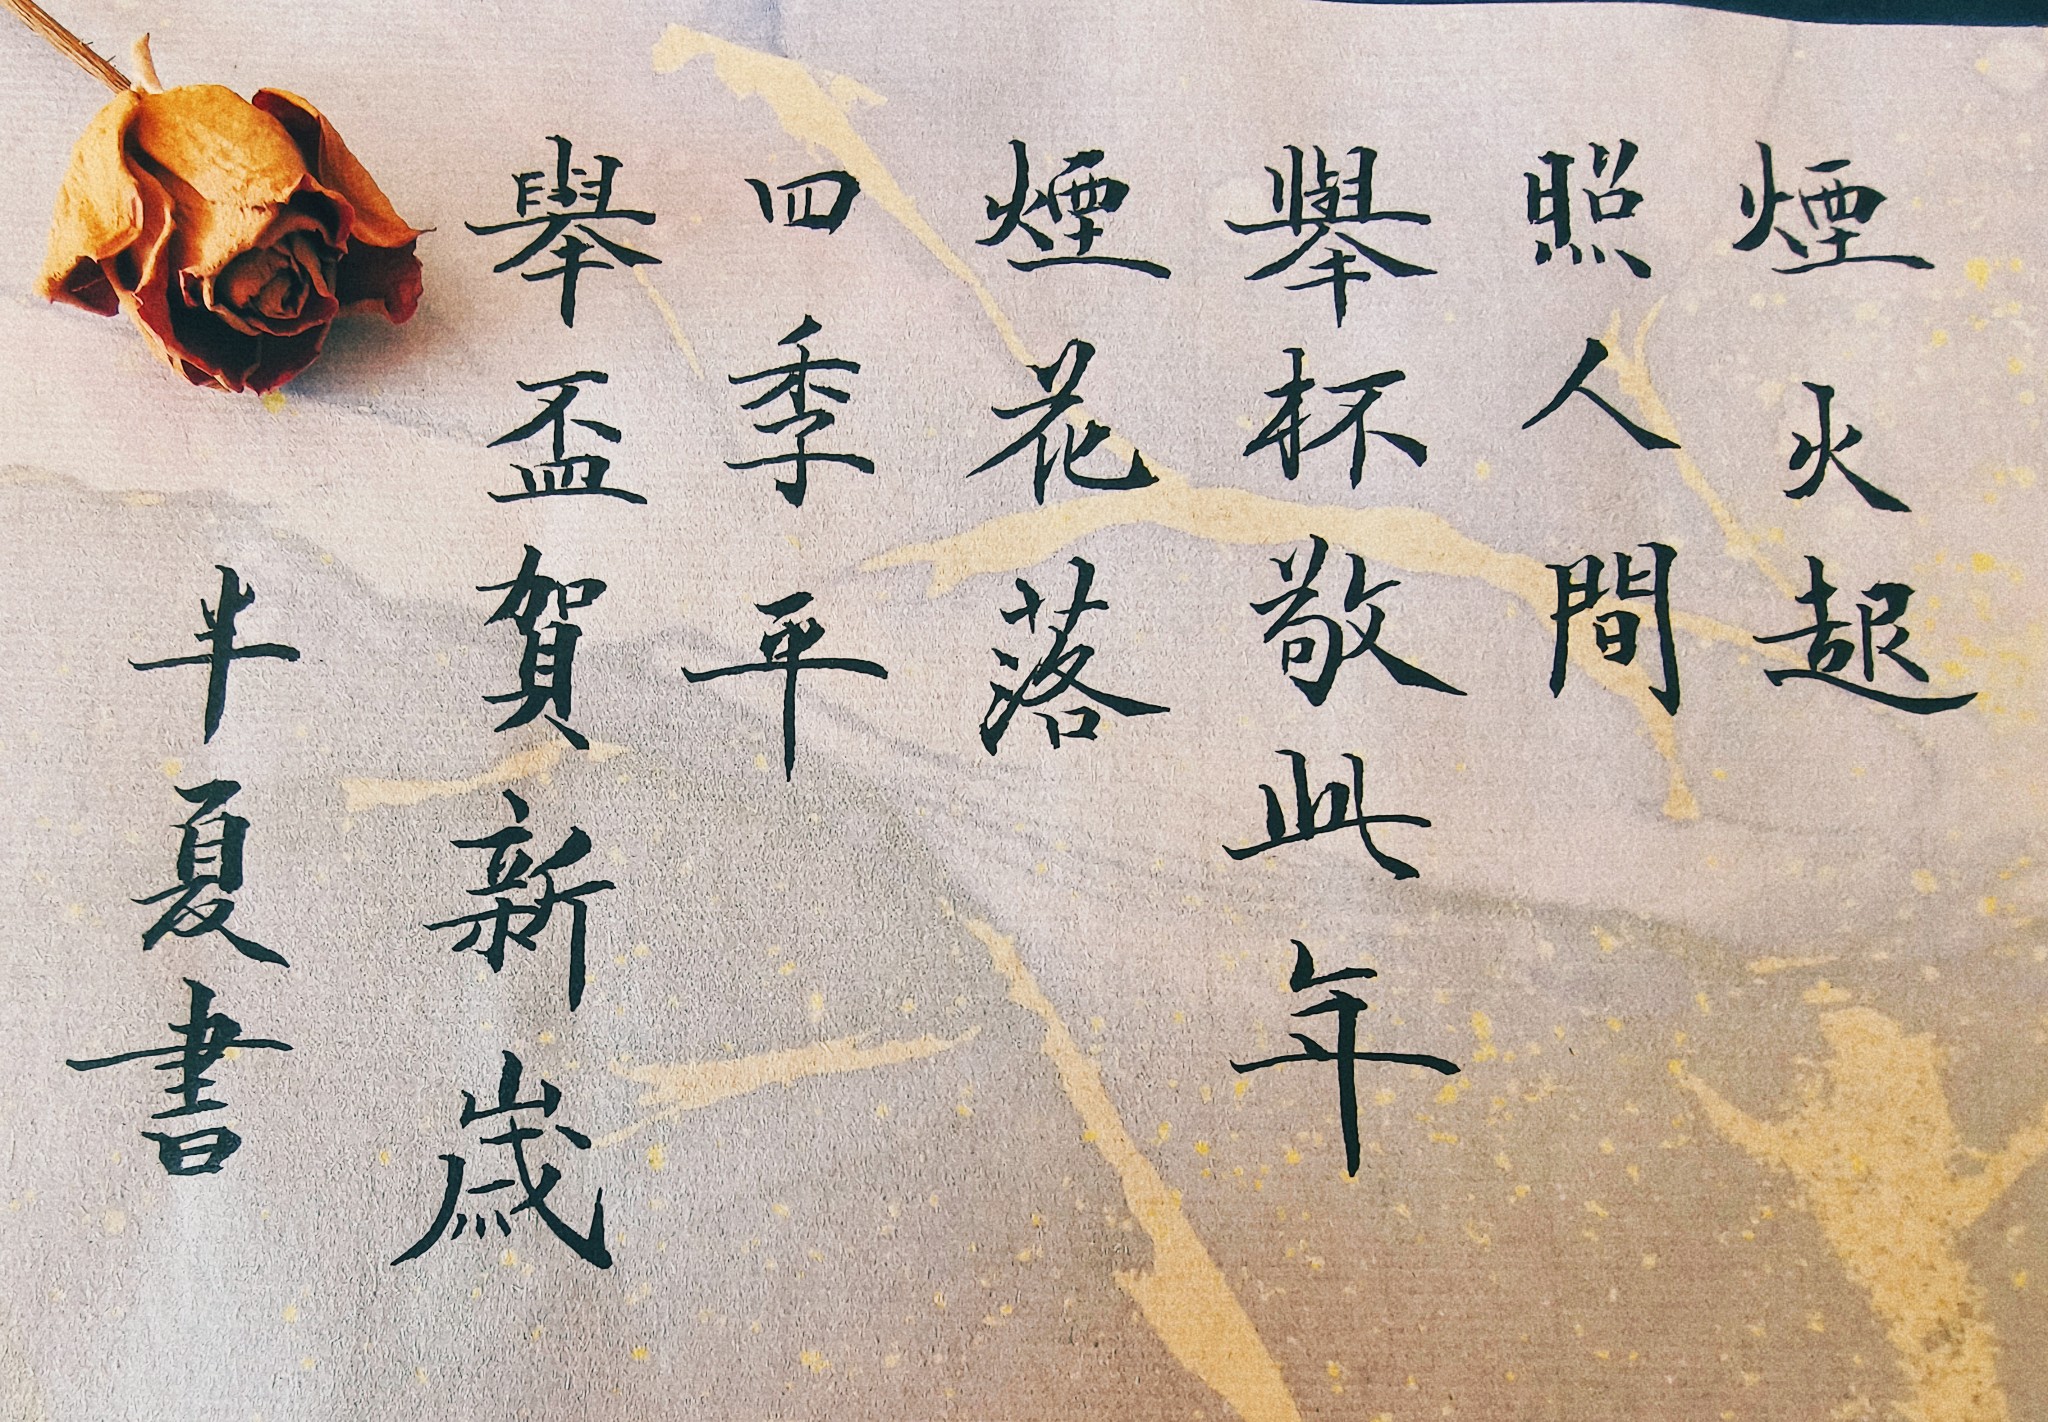 煙火起
照人間
舉杯敬此年
煙花落
四季平
舉盃賀新歲
半夏書